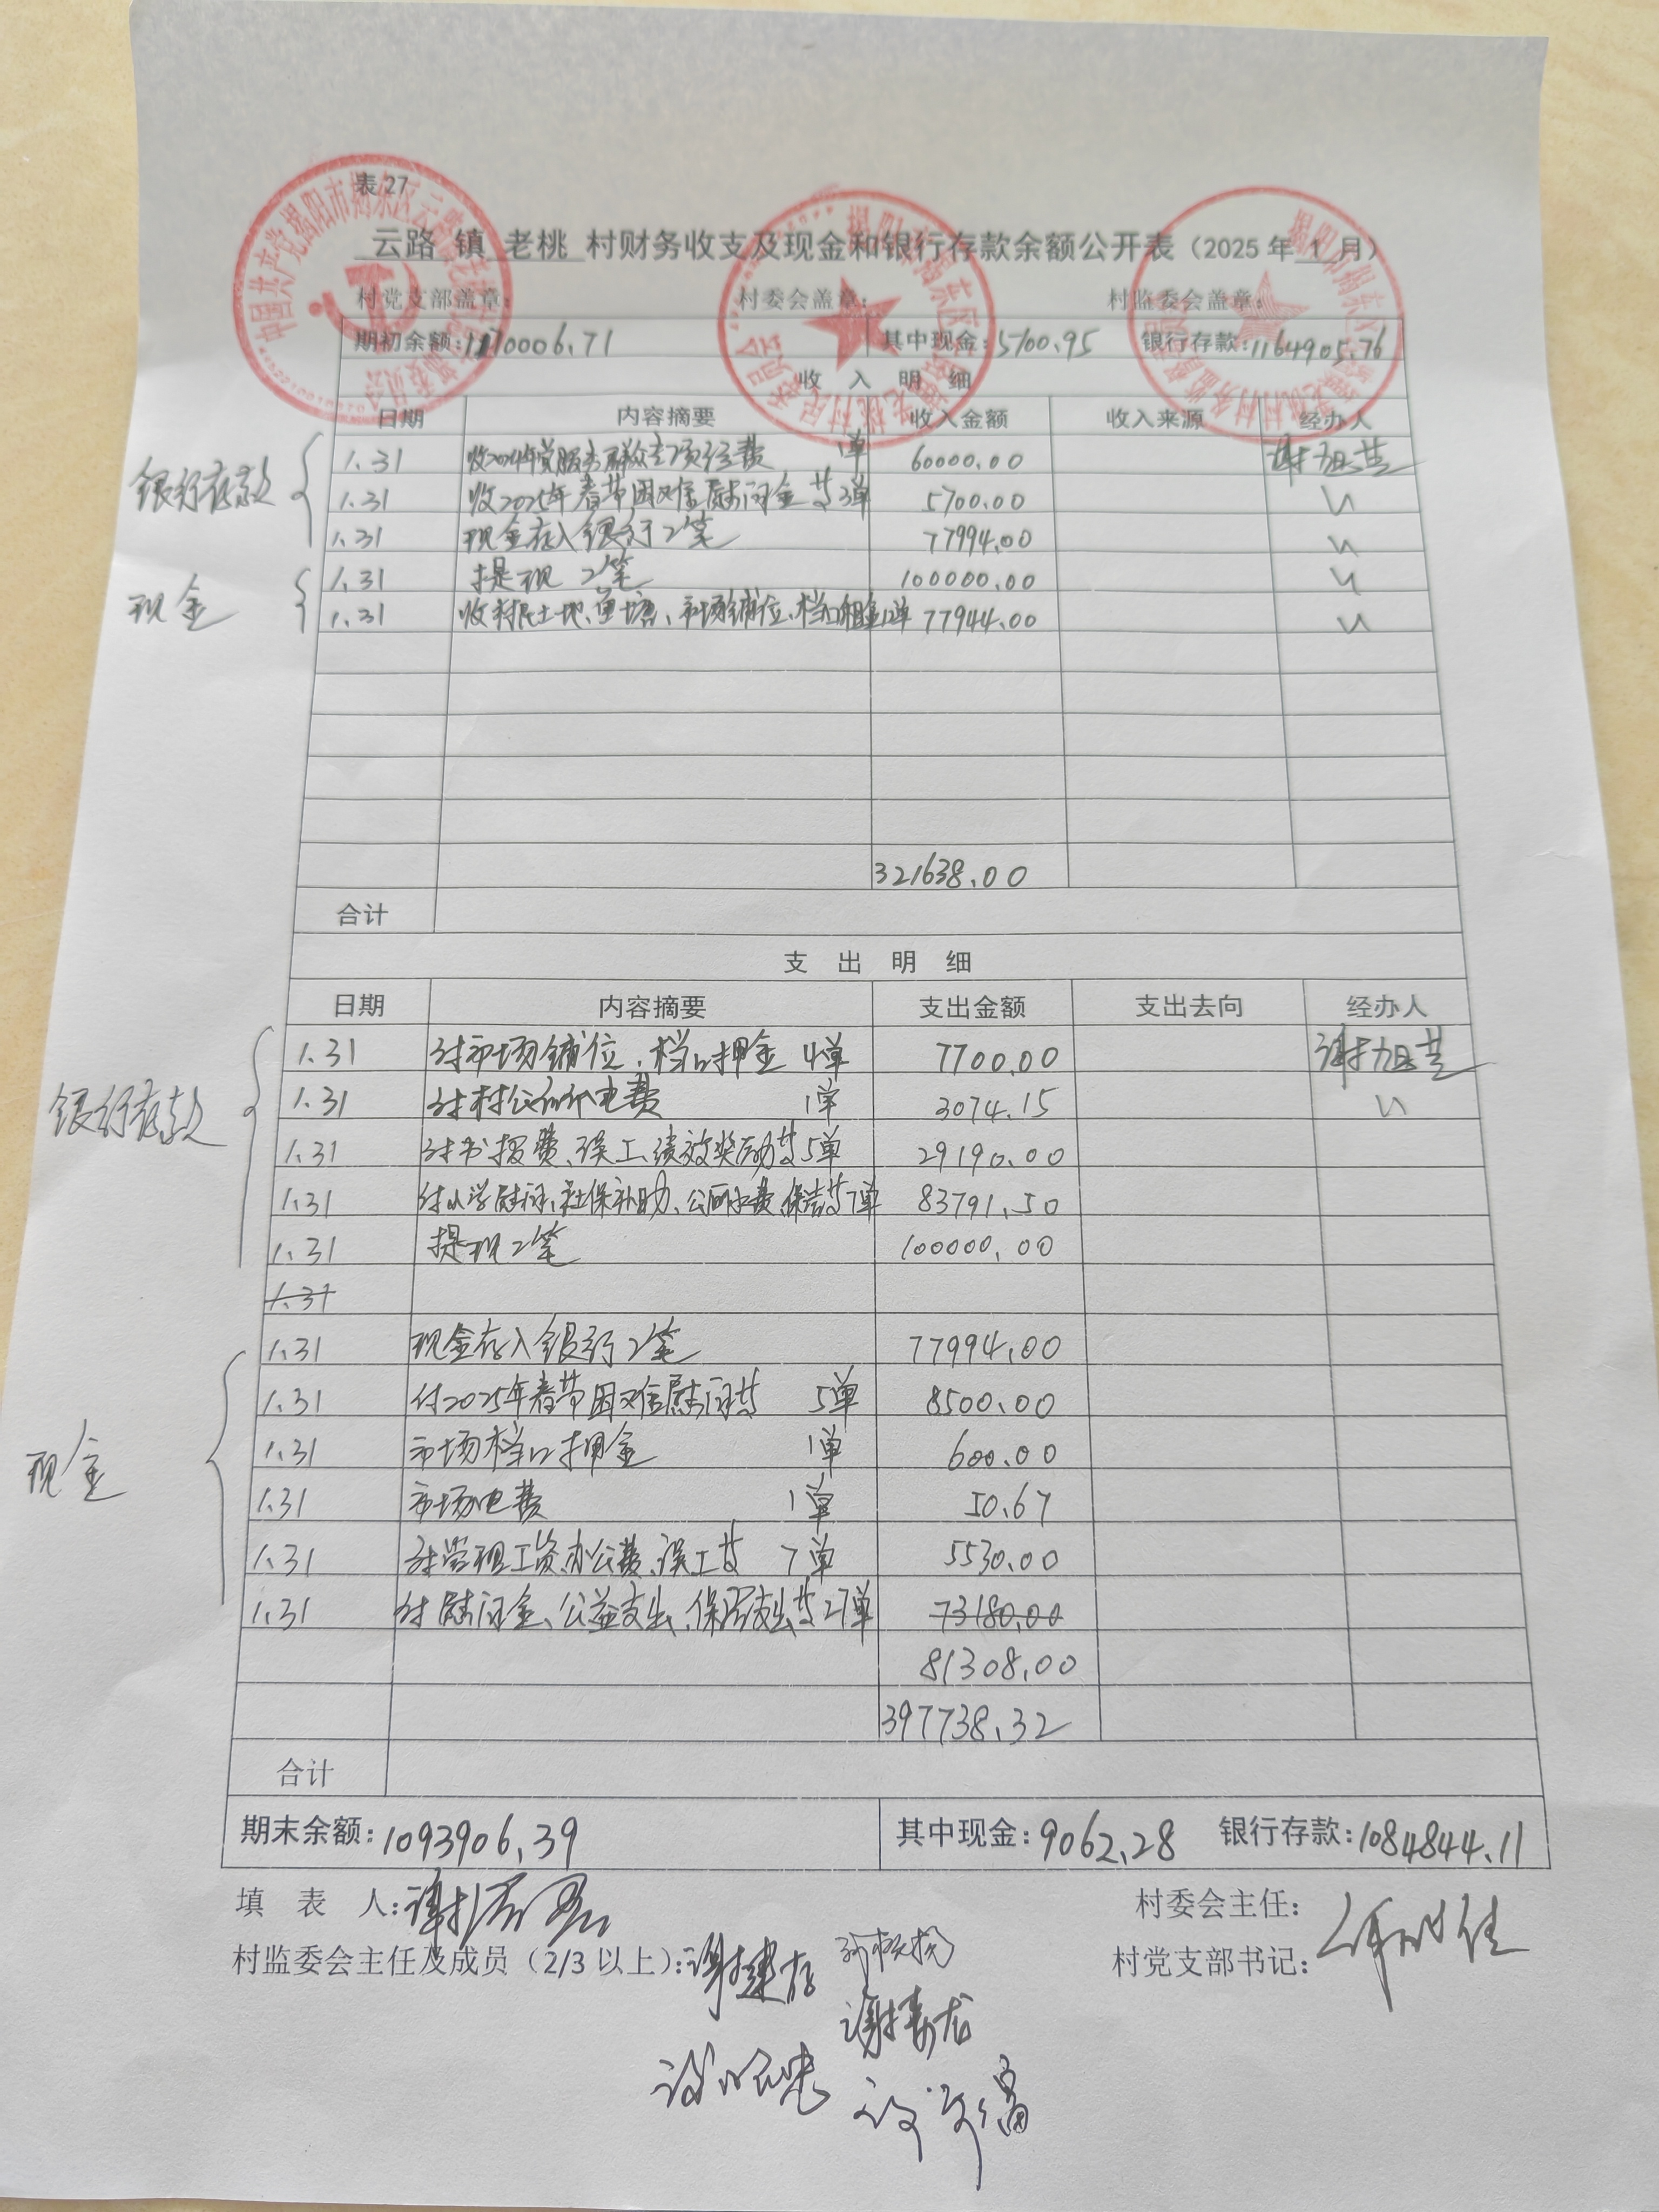 表 27
云路 镇 老桃 村财务收支及现金和银行存款余额公开表（2025 年 1 月）
村党支部盖章： 村委会盖章： 村监委会盖章：
期初余额：1170006.71 其中现金：5100.95 银行存款：1164905.76
收 入 明 细
日期 内容摘要 收入金额 收入来源 经办人
银行存款
1.31 收2024年党服务群众专项经费 1单 60000.00
1.31 收2025年春节困难慰问金等3单 5700.00
1.31 现金存入银行2笔 77994.00
现金
1.31 提现 2笔 100000.00
1.31 收村民土地、鱼塘、市场铺位、档口租金12单 77944.00
321638.00
合计
支 出 明 细
日期 内容摘要 支出金额 支出去向 经办人
银行存款
1.31 付市场铺位、档口押金 4单 7700.00
1.31 付村公所电费 1单 3074.15
1.31 付书报费、误工、绩效奖励等5单 29190.00
1.31 付小学慰问、社保补助、公厕水费、保洁等7单 83791.50
1.31 提现2笔 100000.00
1.31
1.31 现金存入银行2笔 77994.00
现金
1.31 付2025年春节困难慰问等 5单 8500.00
1.31 市场档口押金 1单 600.00
1.31 市场电费 1单 50.67
1.31 付管理工资、办公费、误工等 7单 5530.00
1.31 付慰问金、公益支出、保洁支出等27单 73180.00
81308.00
397738.32
合计
期末余额：1093906.39 其中现金：9062.28 银行存款：1084844.11
填 表 人： 村委会主任：
村监委会主任及成员（2/3 以上）：谢建存 村党支部书记：